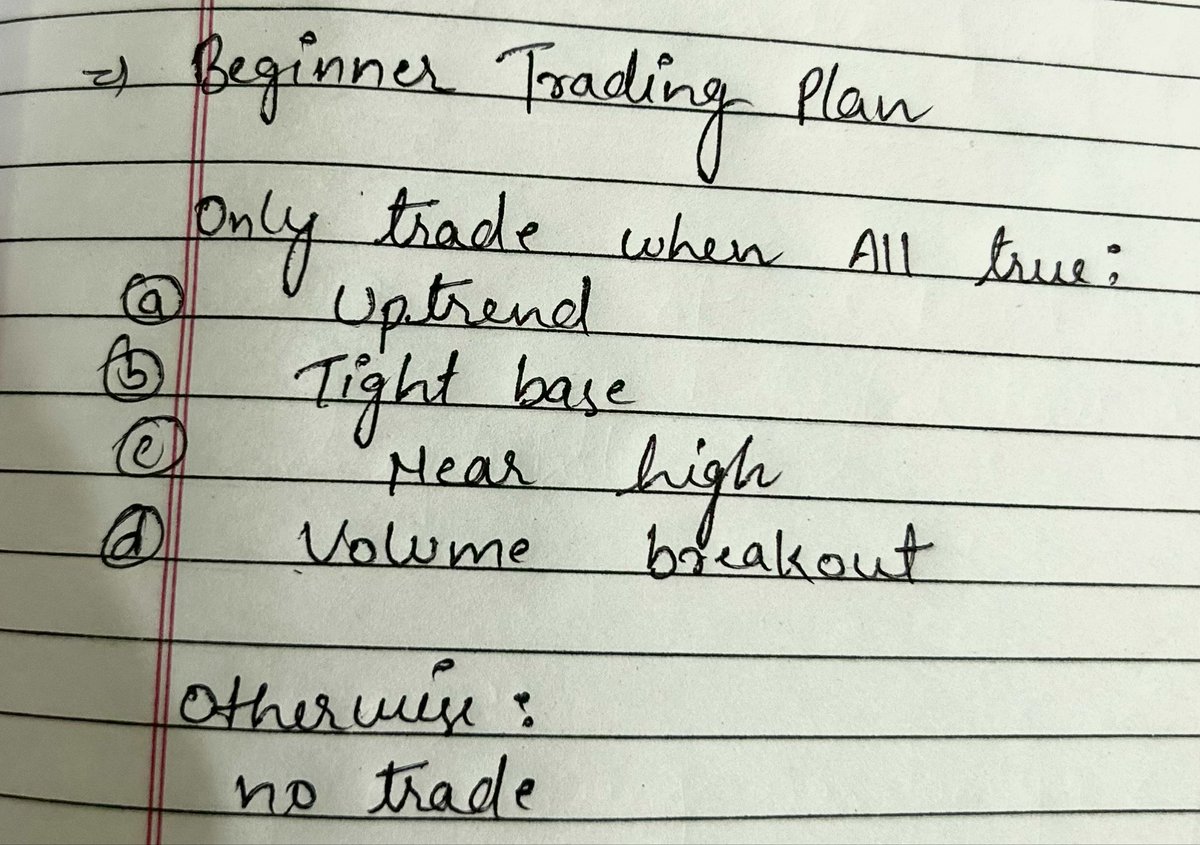 ⇒ Beginner Trading Plan
Only trade when All true:
ⓐ Uptrend
ⓑ Tight base
ⓒ Near high
ⓓ Volume breakout
Otherwise:
no trade